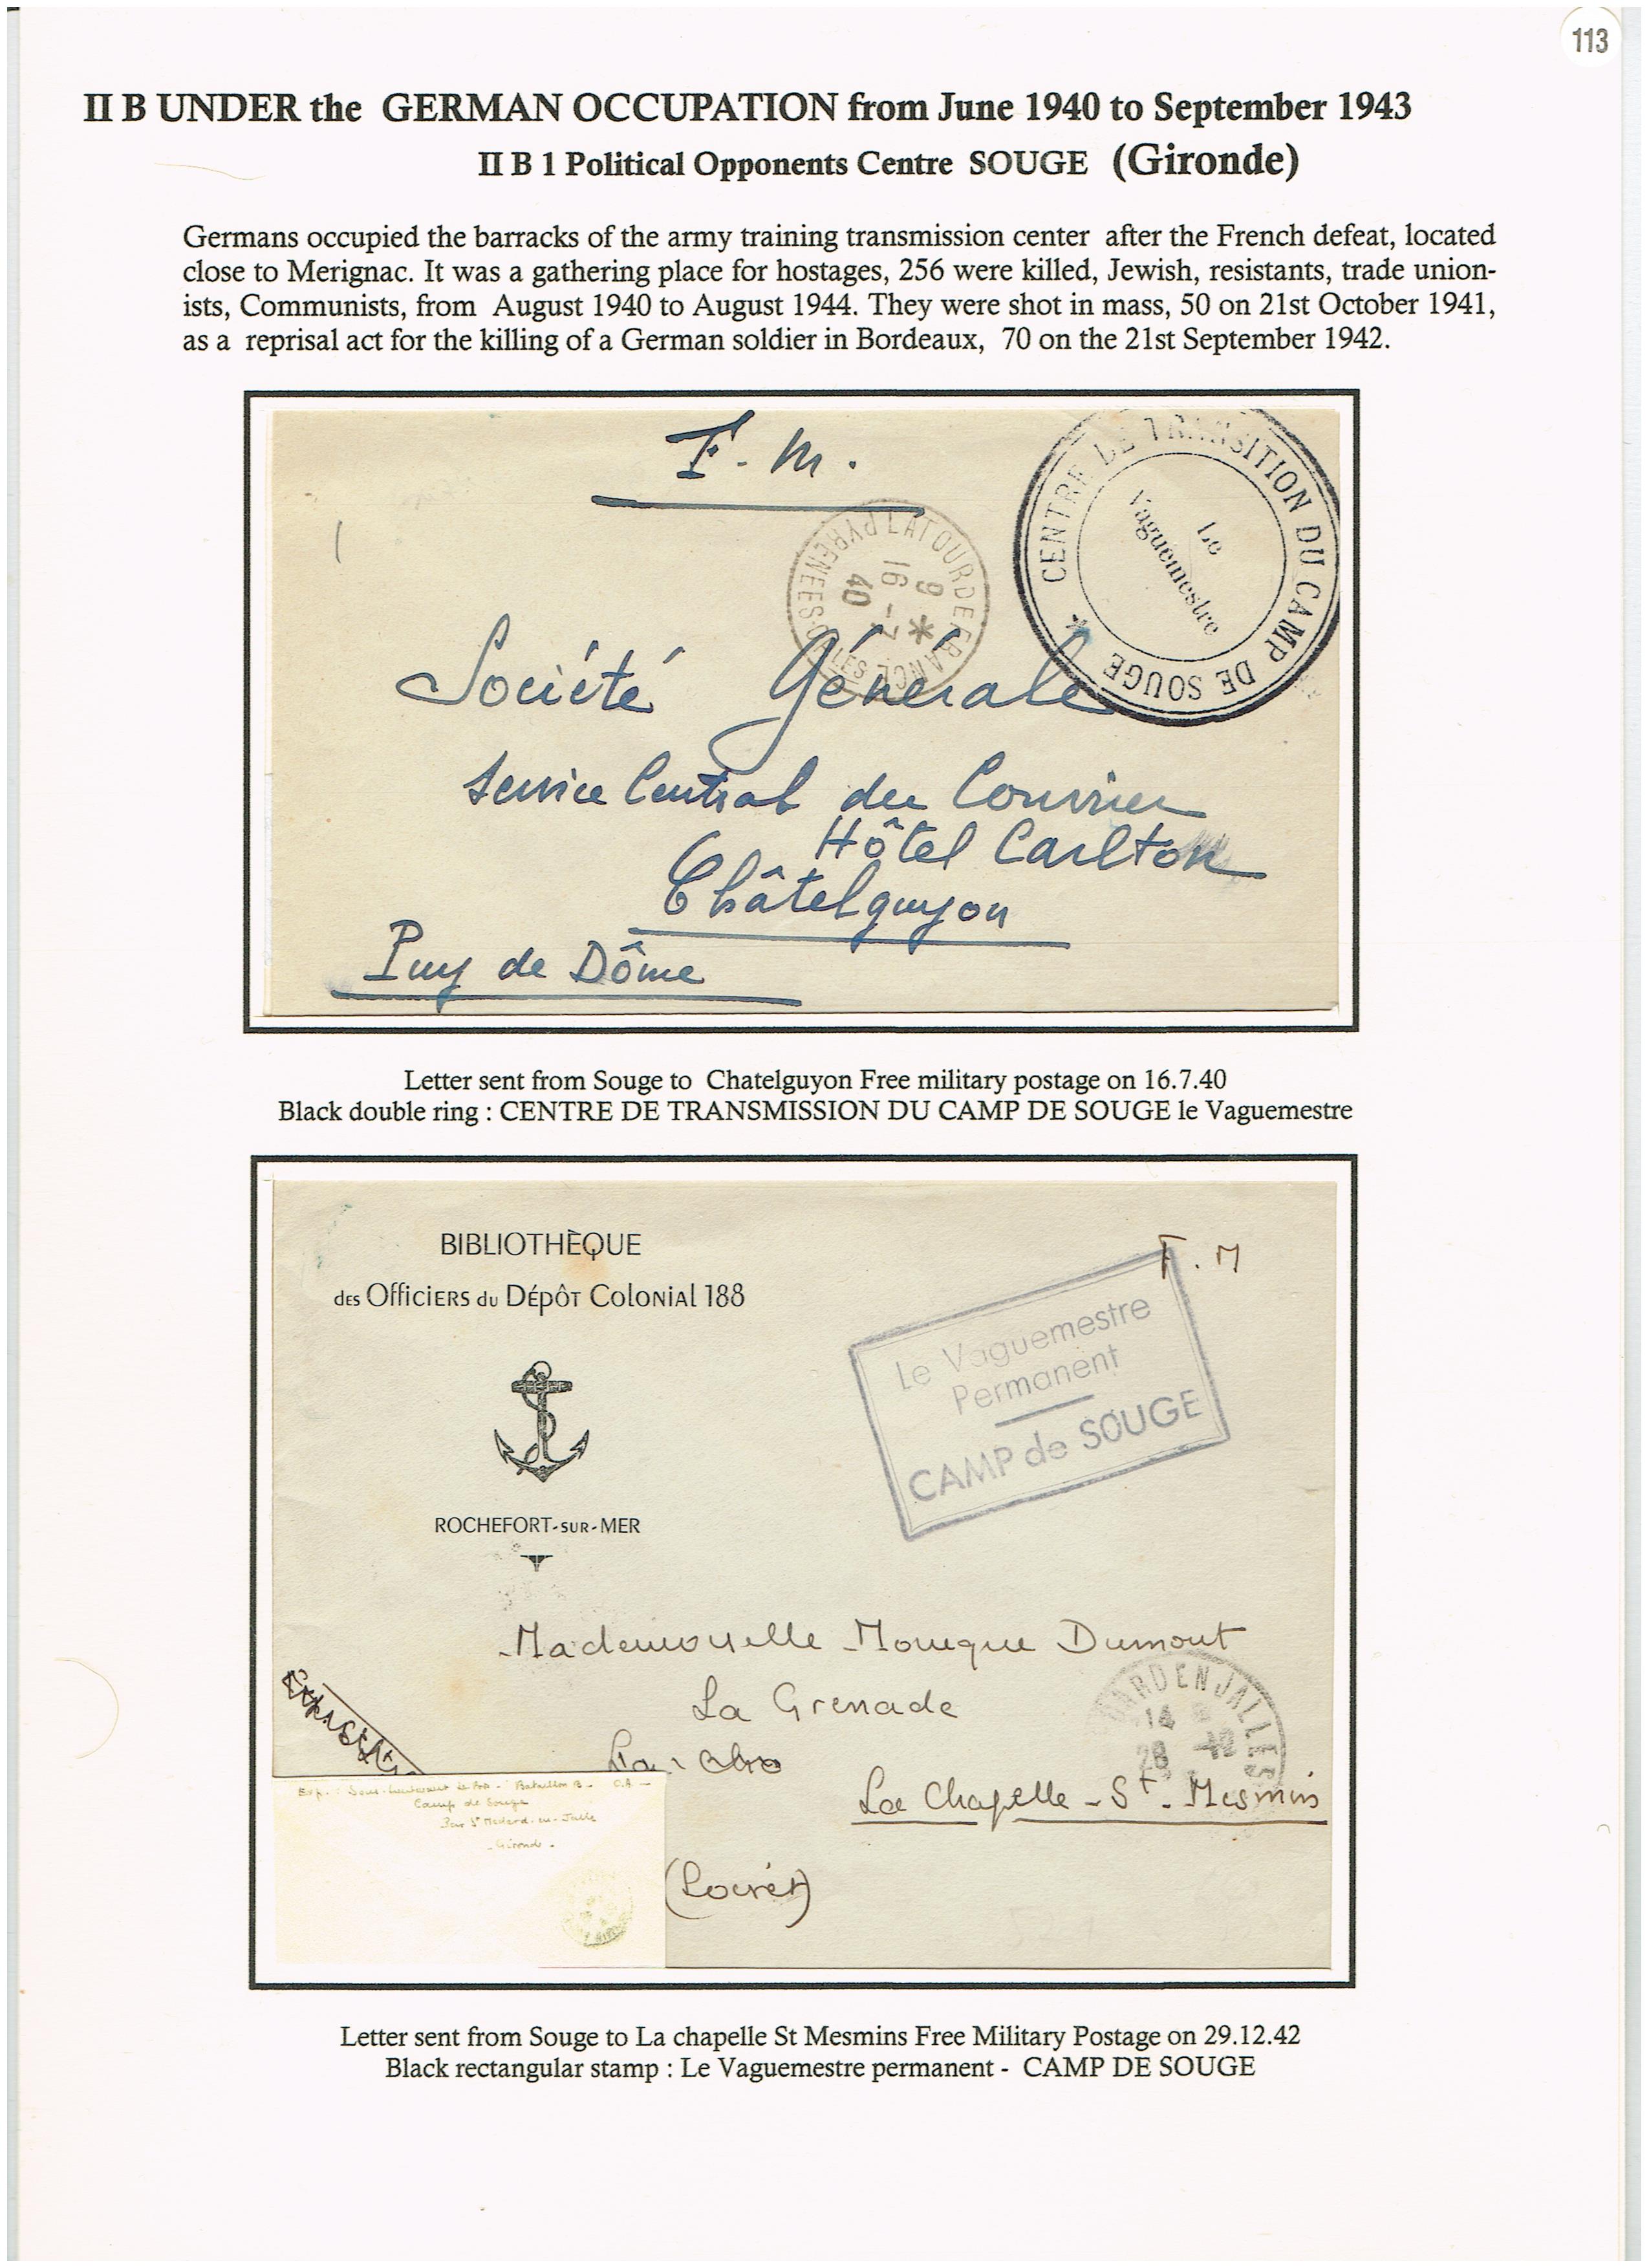 113
II B UNDER the GERMAN OCCUPATION from June 1940 to September 1943
II B 1 Political Opponents Centre SOUGE (Gironde)
Germans occupied the barracks of the army training transmission center after the French defeat, located
close to Merignac. It was a gathering place for hostages, 256 were killed, Jewish, resistants, trade union-
ists, Communists, from August 1940 to August 1944. They were shot in mass, 50 on 21st October 1941,
as a reprisal act for the killing of a German soldier in Bordeaux, 70 on the 21st September 1942.
F. M.
CENTRE DE TRANSITION DU CAMP DE SOUGE *
Le
Vaguemestre
LATOUR DE FRANCE
PYRENEES-
9 *
16 -7
40
Société Générale
Service Central du Courrier
Hôtel Carlton
Châtelguyon
Puy de Dôme
Letter sent from Souge to Chatelguyon Free military postage on 16.7.40
Black double ring : CENTRE DE TRANSMISSION DU CAMP DE SOUGE le Vaguemestre
BIBLIOTHÈQUE
des Officiers du Dépôt Colonial 188
ROCHEFORT-SUR-MER
F. M
Le Vaguemestre
Permanent
CAMP de SOUGE
Mademoiselle Monique Dumont
La Grenade
La Chapelle - St - Mesmin
(Loiret)
ARD EN JALLES
14
28 -12
Exp. : Sous-Lieutenant Bataillon B.
Camp de Souge
Par St Médard-en-Jalle
- Gironde -
Letter sent from Souge to La chapelle St Mesmins Free Military Postage on 29.12.42
Black rectangular stamp : Le Vaguemestre permanent - CAMP DE SOUGE